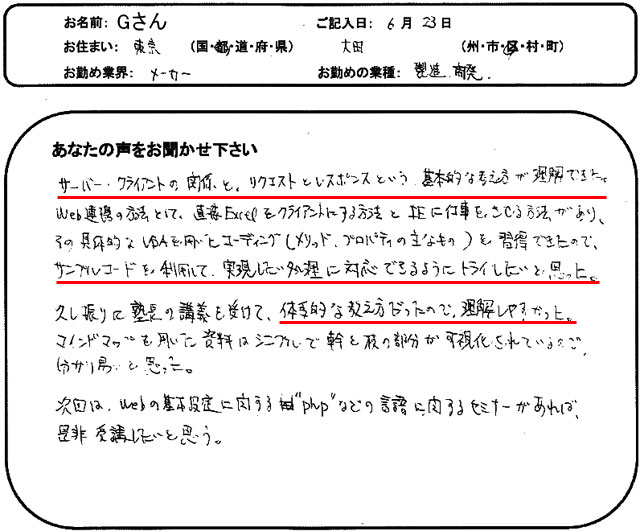 お名前: Gさん ご記入日: 6月 23日
お住まい: 東京 (国・都・道・府・県) 大田 (州・市・区・村・町)
お勤め業界: メーカー お勤めの業種: 製造.開発.
あなたの声をお聞かせ下さい
サーバー・クライアントの関係と、リクエストとレスポンスという、基本的な考え方が理解できた。
Web連携の方法として、直接Excelをクライアントにする方法とIEに仕事をさせる方法があり、
その具体的なVBAを用いたコーディング(メソッド、プロパティの主なもの)を習得できたので、
サンプルコードを利用して、実現したい処理に対応できるようにトライしたいと思った。
久し振りに塾長の講義を受けて、体系的な教え方だったので、理解しやすかった。
マインドマップを用いた資料はシンプルで幹と枝の部分が可視化されているので、
分かり易いと思った。
次回は、Webの基本設定に関する"php"などの言語に関するセミナーがあれば、
是非受講したいと思う。